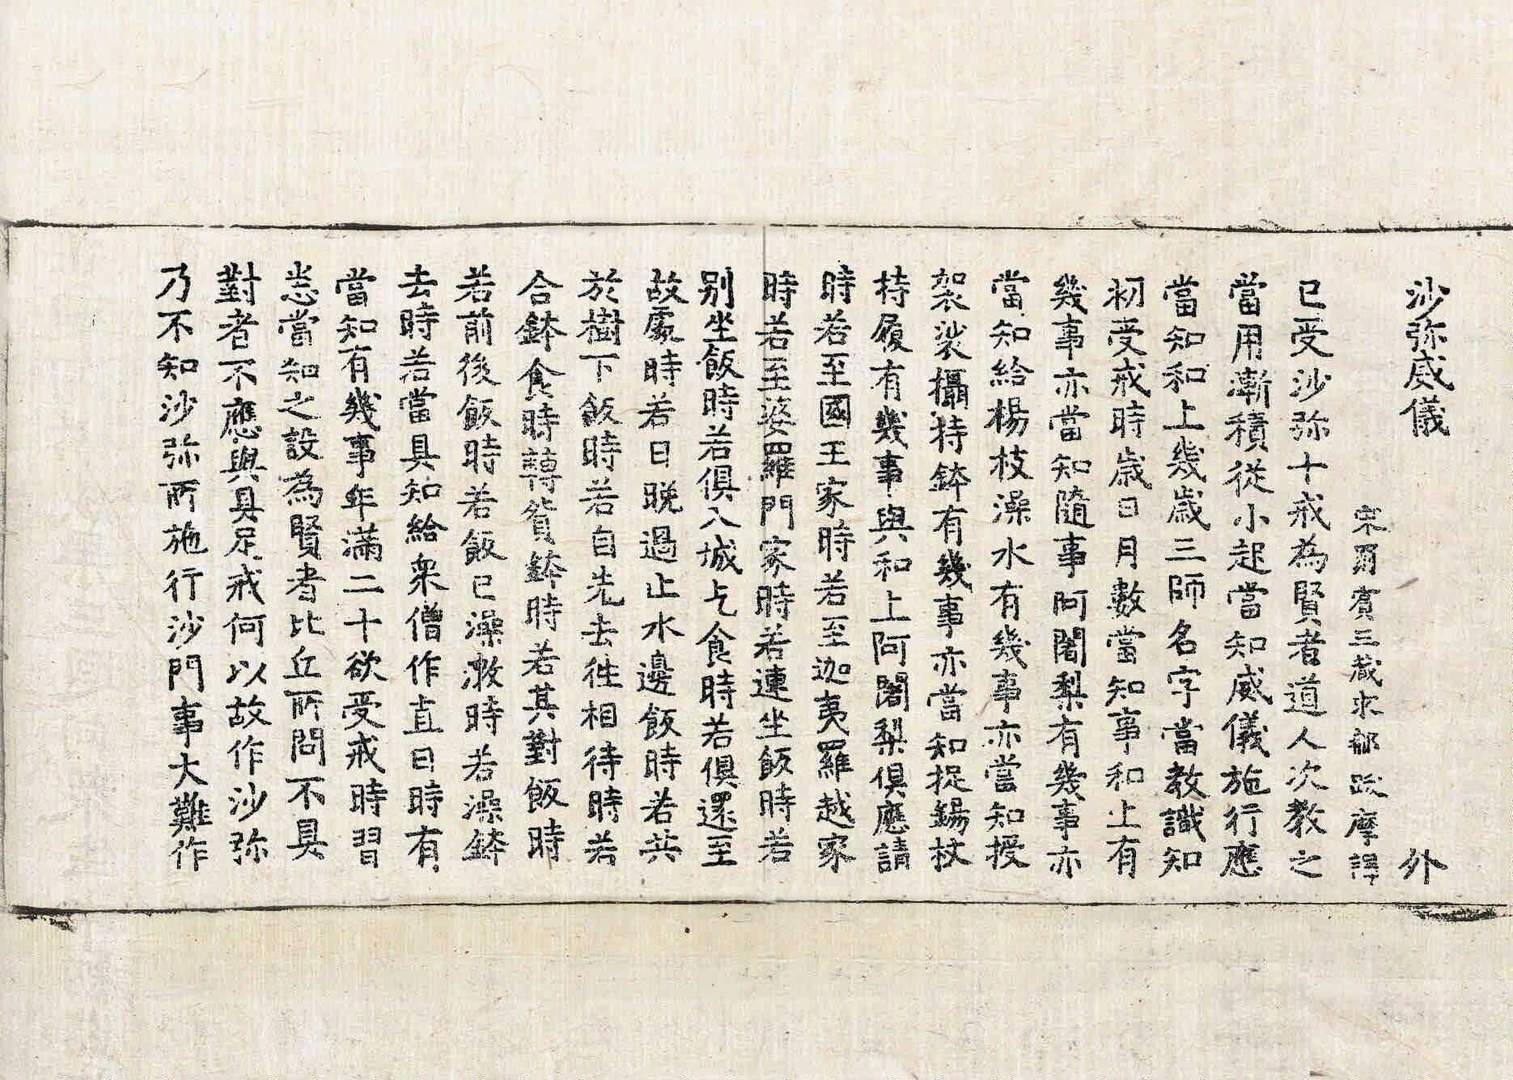 沙弥威儀　外
宋罽賓三藏求那跋摩譯
已受沙弥十戒為賢者道人次教之
當用漸積從小起當知威儀施行應
當知和上幾歲三師名字當教識知
初受戒時歲日月數當知事和上有
幾事亦當知隨事阿闍梨有幾事亦
當知給楊枝澡水有幾事亦當知授
袈裟攝持鉢有幾事亦當知捉錫杖
持履有幾事與和上阿闍梨俱應請
時若至國王家時若至迦夷羅越家
時若至婆羅門家時若連坐飯時若
别坐飯時若俱入城乞食時若俱還至
故處時若日晚過止水邊飯時若共
於樹下飯時若自先去徃相待時若
合鉢食時轉貿鉢時若其對飯時
若前後飯時若飯已澡漱時若澡鉢
去時若當具知給衆僧作直日時有
當知有幾事年滿二十欲受戒時習
悉當知之設為賢者比丘所問不具
對者不應與具足戒何以故作沙弥
乃不知沙弥所施行沙門事大難作